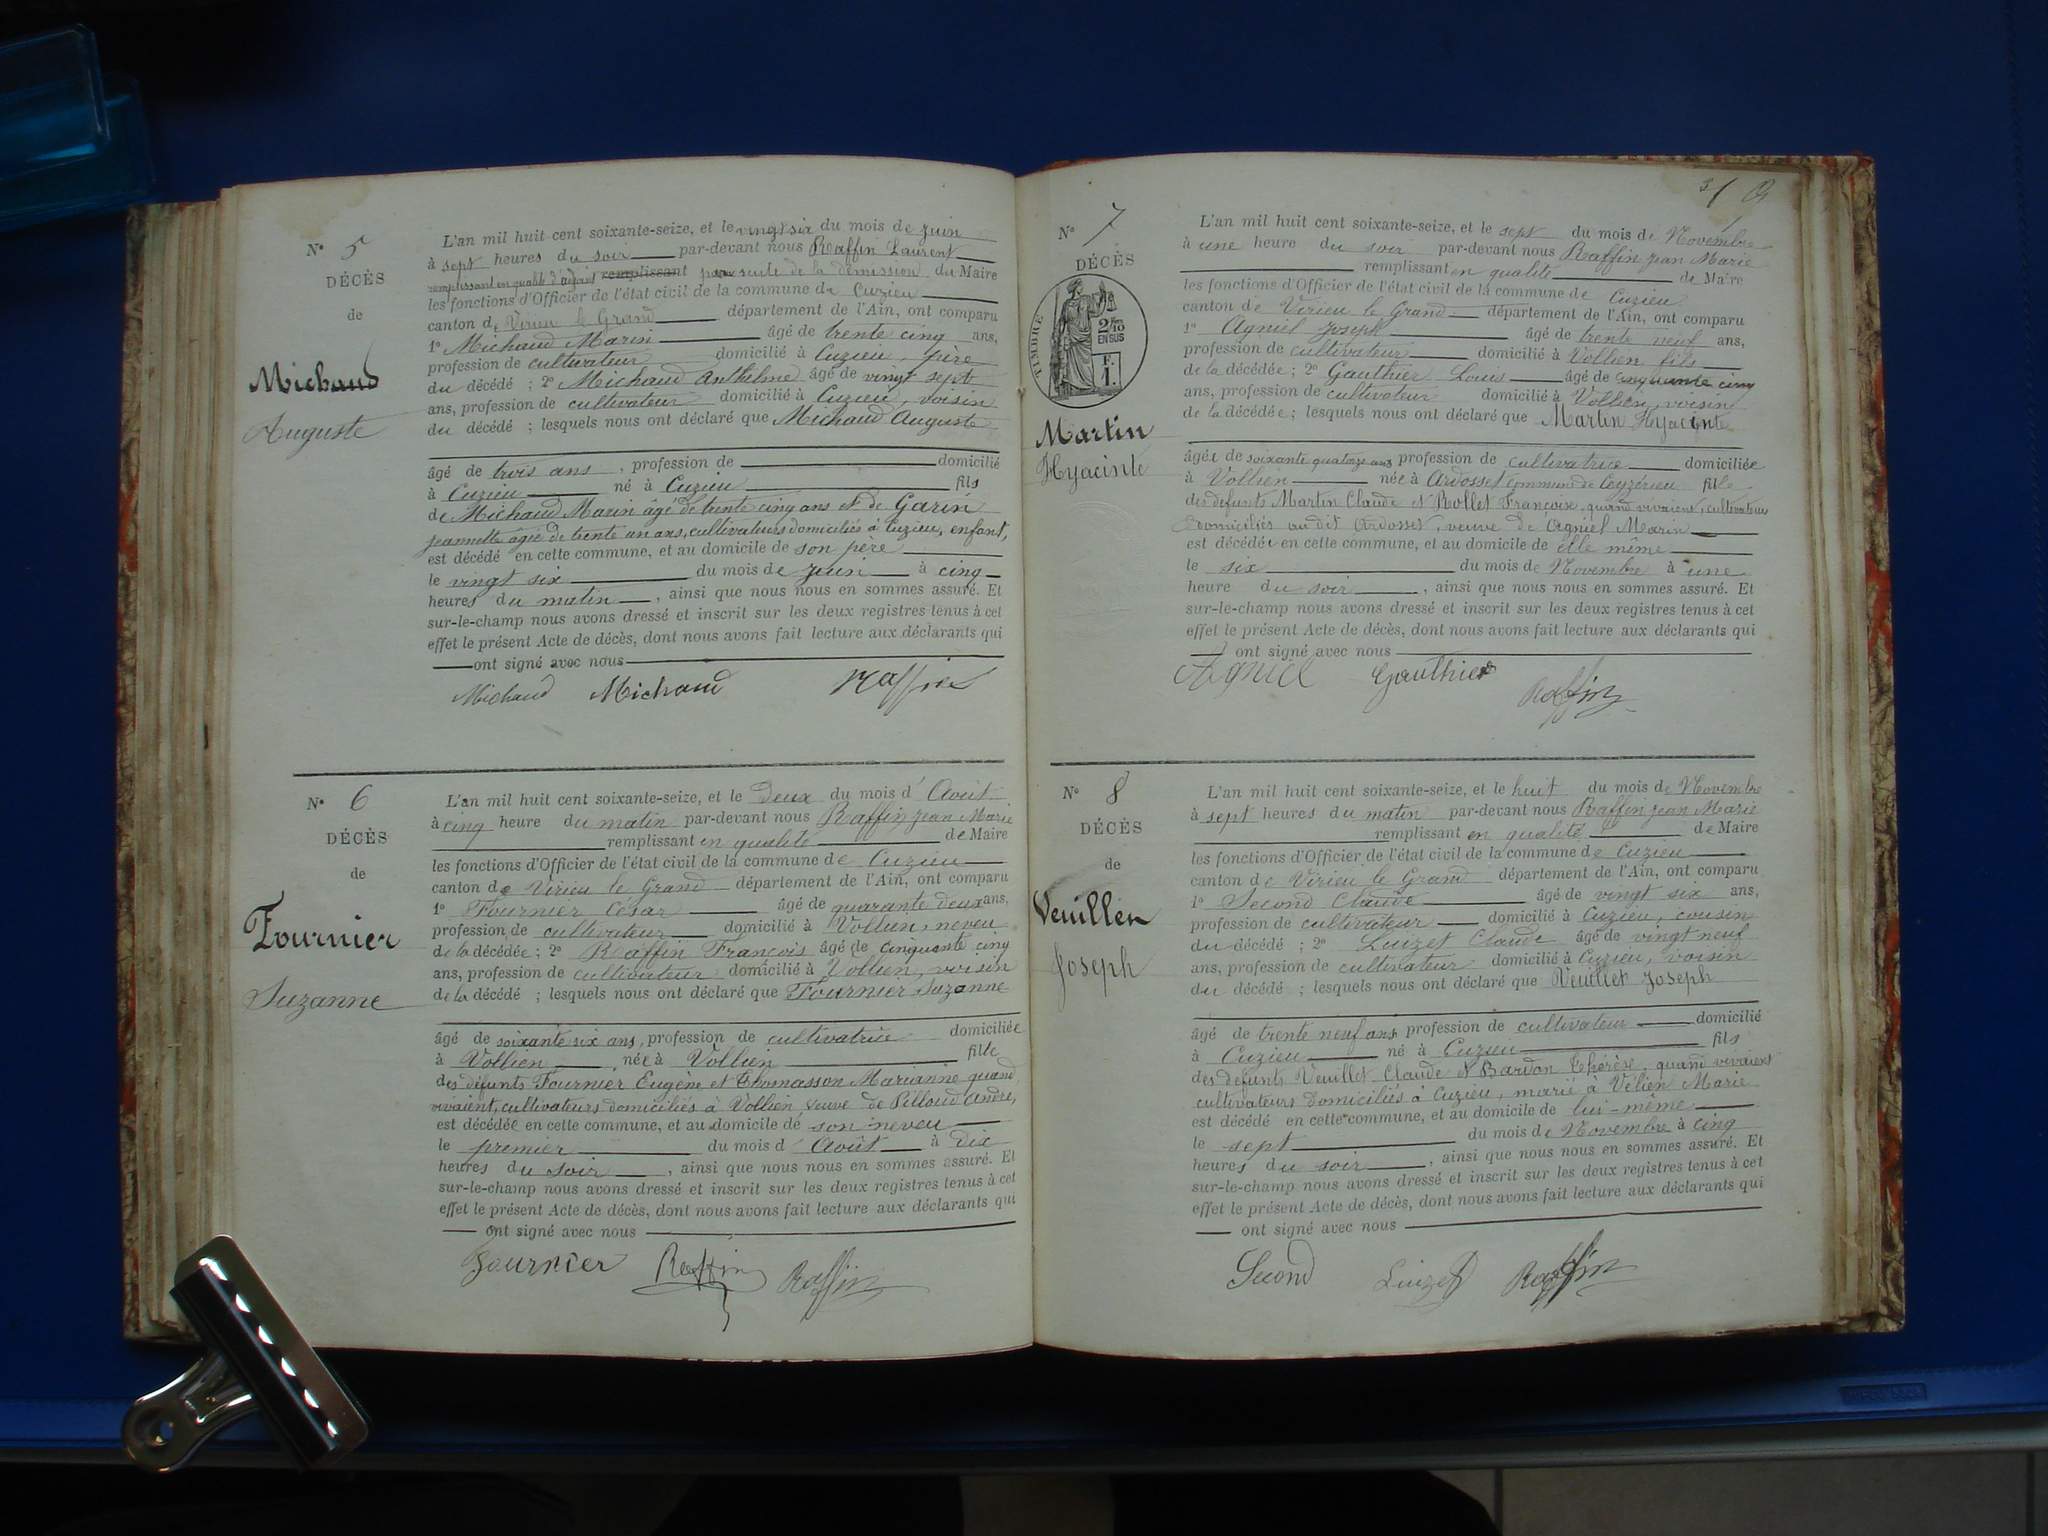 N° 5
DÉCÈS
de
Michaud
Auguste
L'an mil huit cent soixante-seize, et le vingt six du mois de juin
à sept heures du soir par-devant nous Raffin Laurent
remplissant en qualité d'adjoint remplissant par suite de la démission du Maire
les fonctions d'Officier de l'état civil de la commune de Cuzieu
canton de Virieu le Grand département de l'Ain, ont comparu
1° Michaud Marin âgé de trente cinq ans,
profession de cultivateur domicilié à Cuzieu, père
du décédé ; 2° Michaud Anthelme âgé de vingt sept
ans, profession de cultivateur domicilié à Cuzieu, voisin
du décédé ; lesquels nous ont déclaré que Michaud Auguste
âgé de trois ans, profession de domicilié
à Cuzieu né à Cuzieu fils
de Michaud Marin âgé de trente cinq ans et de Garin
jeannette âgée de trente un ans, cultivateurs domiciliés à Cuzieu, enfant,
est décédé en cette commune, et au domicile de son père
le vingt six du mois de juin à cinq
heures du matin, ainsi que nous nous en sommes assuré. Et
sur-le-champ nous avons dressé et inscrit sur les deux registres tenus à cet
effet le présent Acte de décès, dont nous avons fait lecture aux déclarants qui
ont signé avec nous
Michaud Michaud Raffin
N° 6
DÉCÈS
de
Fournier
Suzanne
L'an mil huit cent soixante-seize, et le Deux du mois d'Août
à cinq heure du matin par-devant nous Raffin jean Marie
remplissant en qualité de Maire
les fonctions d'Officier de l'état civil de la commune de Cuzieu
canton de Virieu le Grand département de l'Ain, ont comparu
1° Fournier César âgé de quarante deux ans,
profession de cultivateur domicilié à Vollien, neveu
de la décédée ; 2° Raffin François âgé de cinquante cinq
ans, profession de cultivateur domicilié à Vollien, voisin
de la décédé ; lesquels nous ont déclaré que Fournier Suzanne
âgé de soixante six ans, profession de cultivatrice domiciliée
à Vollien née à Vollien fille
des défunts Fournier Eugène et Thomasson Marianne quand
vivaient, cultivateurs domiciliés à Vollien, veuve de Pilloud André,
est décédée en cette commune, et au domicile de son neveu
le premier du mois d'Août à dix
heures du soir, ainsi que nous nous en sommes assuré. Et
sur-le-champ nous avons dressé et inscrit sur les deux registres tenus à cet
effet le présent Acte de décès, dont nous avons fait lecture aux déclarants qui
ont signé avec nous
Fournier Raffin Raffin
N° 7
DÉCÈS
TIMBRE
2/10
EN SUS
F.
1.
Martin
Hyacinte
L'an mil huit cent soixante-seize, et le sept du mois de Novembre
à une heure du soir par-devant nous Raffin jean Marie
remplissant en qualité de Maire
les fonctions d'Officier de l'état civil de la commune de Cuzieu
canton de Virieu le Grand département de l'Ain, ont comparu
1° Agniel Joseph âgé de trente neuf ans,
profession de cultivateur domicilié à Vollien fils
de la décédée ; 2° Gauthier Louis âgé de cinquante cinq
ans, profession de cultivateur domicilié à Vollien, voisin
de la décédée ; lesquels nous ont déclaré que Martin Hyacinte
âgée de soixante quatorze ans profession de cultivatrice domiciliée
à Vollien née à Ardosset commune de Ceyzérieu fille
des defunts Martin Claude et Rollet Françoise, quand vivaient, cultivateurs
domiciliés au dit Ardosset, veuve de Agniel Marin
est décédée en cette commune, et au domicile de elle même
le six du mois de Novembre à une
heure du soir, ainsi que nous nous en sommes assuré. Et
sur-le-champ nous avons dressé et inscrit sur les deux registres tenus à cet
effet le présent Acte de décès, dont nous avons fait lecture aux déclarants qui
ont signé avec nous
Agniel Gauthier Raffin
N° 8
DÉCÈS
de
Veuillen
Joseph
L'an mil huit cent soixante-seize, et le huit du mois de Novembre
à sept heures du matin par-devant nous Raffin jean Marie
remplissant en qualité de Maire
les fonctions d'Officier de l'état civil de la commune de Cuzieu
canton de Virieu le Grand département de l'Ain, ont comparu
1° Second Claude âgé de vingt six ans,
profession de cultivateur domicilié à Cuzieu, cousin
du décédé ; 2° Luizet Claude âgé de vingt neuf
ans, profession de cultivateur domicilié à Cuzieu, voisin
du décédé ; lesquels nous ont déclaré que Veuillet Joseph
âgé de trente neuf ans profession de cultivateur domicilié
à Cuzieu né à Cuzieu fils
des defunts Veuillet Claude et Bardon Thérèse, quand vivaient
cultivateurs domiciliés à Cuzieu, marié à Vélien Marie
est décédé en cette commune, et au domicile de lui-même
le sept du mois de Novembre à cinq
heures du soir, ainsi que nous nous en sommes assuré. Et
sur-le-champ nous avons dressé et inscrit sur les deux registres tenus à cet
effet le présent Acte de décès, dont nous avons fait lecture aux déclarants qui
ont signé avec nous
Second Luizet Raffin